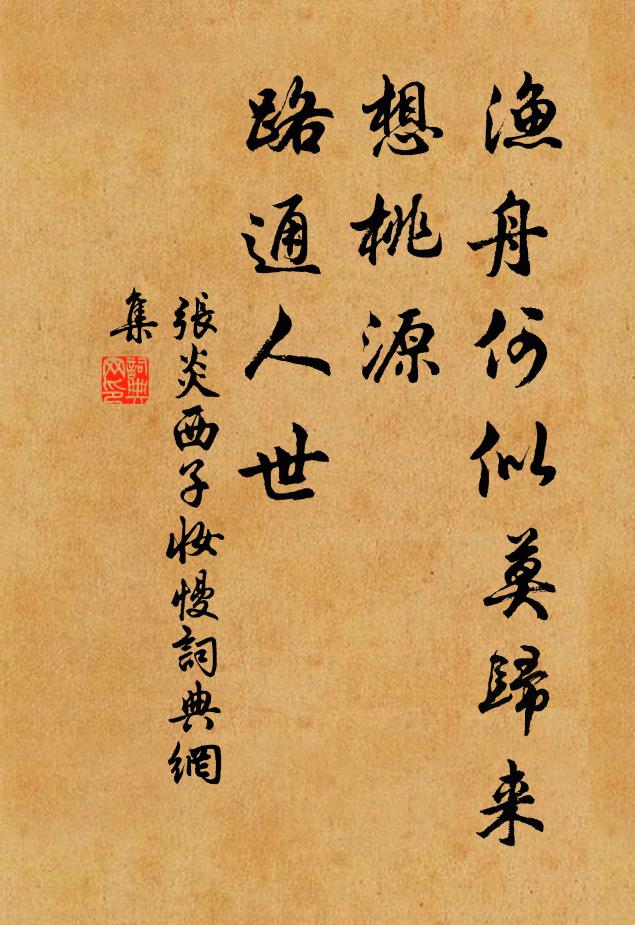 漁舟何似莫歸来
想桃源
路通人世
張炎西子妝慢詞典網
集
詞典
网印